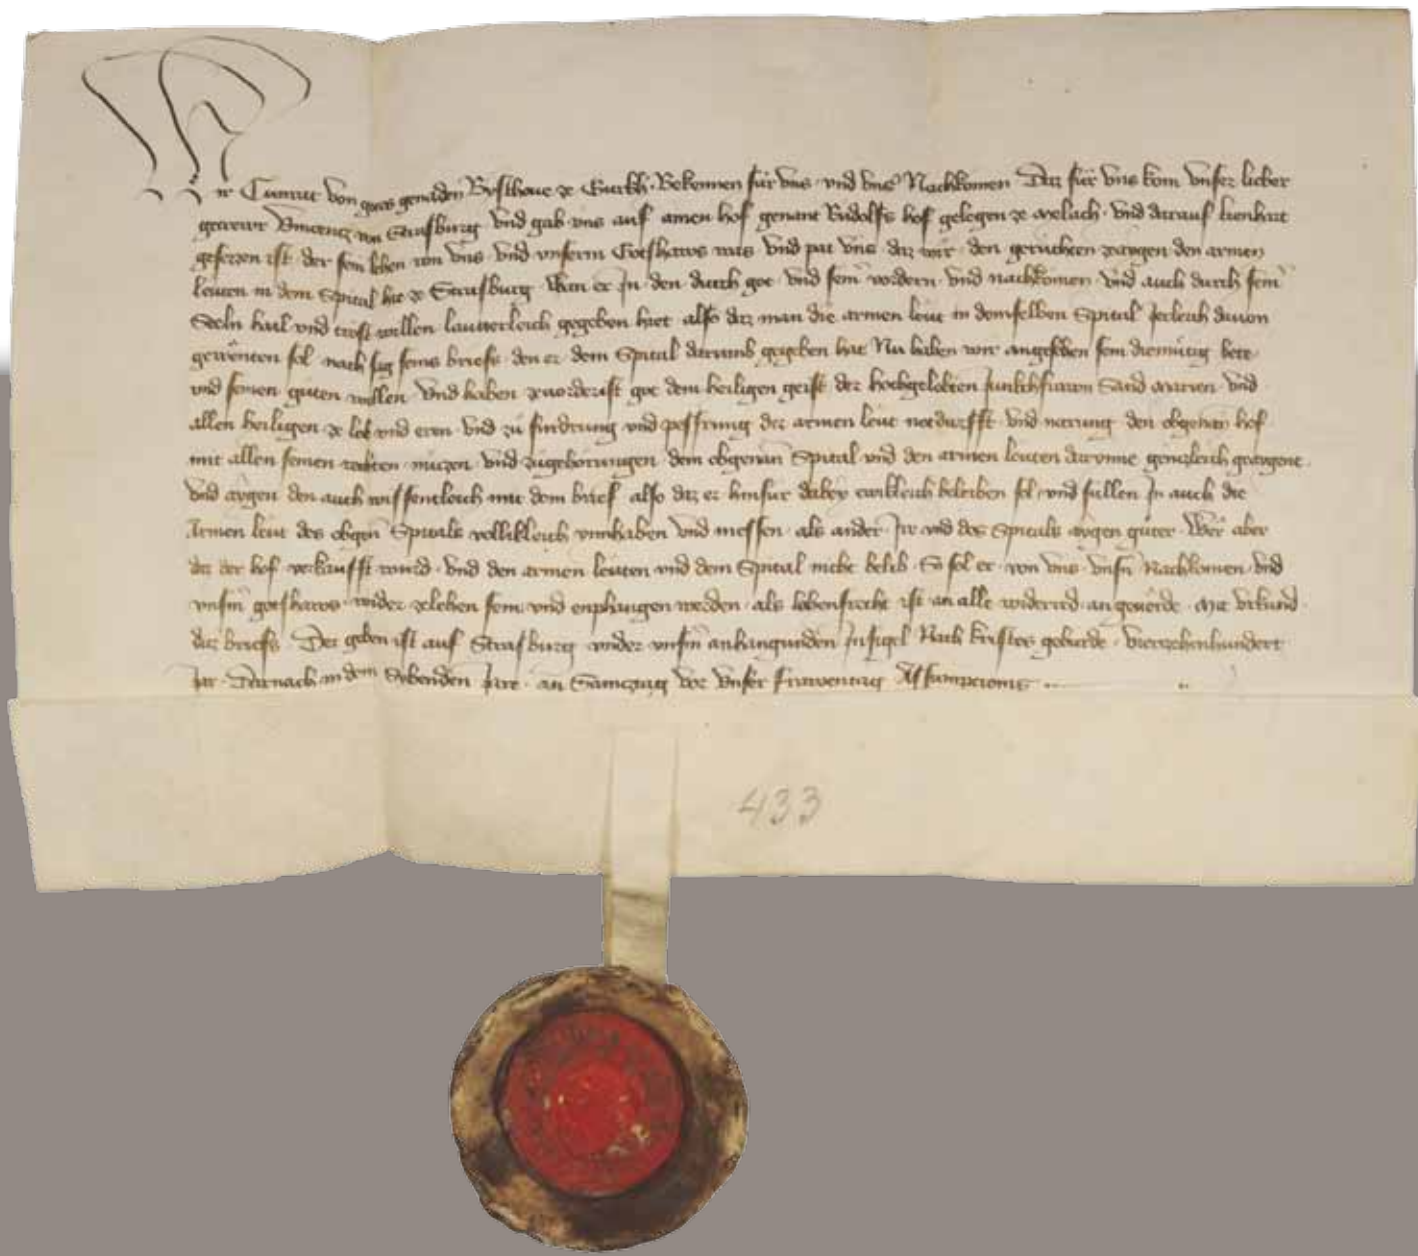 Wir Cunrat von gots genaden Bysthoue ze Gurkh. Bekennen für vns vnd vns Nachkomen Daz für vns kom vnser lieber
getrewr von Strasburg vnd gab vns auf ainen hof genant Rudolfs hof gelegen ze vnd darauf lienhart
gesezzen ist der sein lehen von vns vnd vnserm Gotshaws was vnd pat vns daz wir den geruchten den armen
leuten in dem Spital hie ze Strasburg Wan er In den durch got vnd seinr vordern vnd nachkomen vnd auch durch seinr
Seeln hail vnd trost willen lauterleich gegeben hiet also daz man die armen leut in demselben Spital Jerleich dauon
sol nach sag seins briefs den er dem Spital darumb gegeben hat Nu haben wir angesehen sein diemütig bett
vnd seinen guten willen Vnd haben zuordrist got dem heiligen geist der hochgelobten Junkhfrawn Sand Marien vnd
allen heiligen ze lob vnd eren vnd zu fürdrung vnd pessrung der armen leut notdurfft vnd narung den obgenan hof
mit allen seinen rechten nüczen vnd zugehorungen dem obgenan Spital vnd den armen leuten darynne genczleich geaygent
vnd aygen den auch wissentleich mit dem brief also daz er hinfur dabey ewikleich beleiben sol vnd sullen In auch die
Armen leut des obgen Spitals vollikleich Innhaben vnd niessen als ander Ir vnd des Spitals aygen güter Wer aber
daz der hof verkaufft wurd vnd den armen leuten vnd dem Spital nicht belib So sol er von vns vnsn Nachkomen vnd
vnsm gotshaws wider zelehen sein vnd enphangen werden als lehensrecht ist an alle widerred an geuerde Mit vrkund
daz briefs Der geben ist auf Strasburg vnder vnsm anhangunden Insigel Nach kristes geburde vierzehenhundert
Jar Darnach in dem Sybenden Jare an Samcztag vor Vnser Frawentag Assumpcionis
433